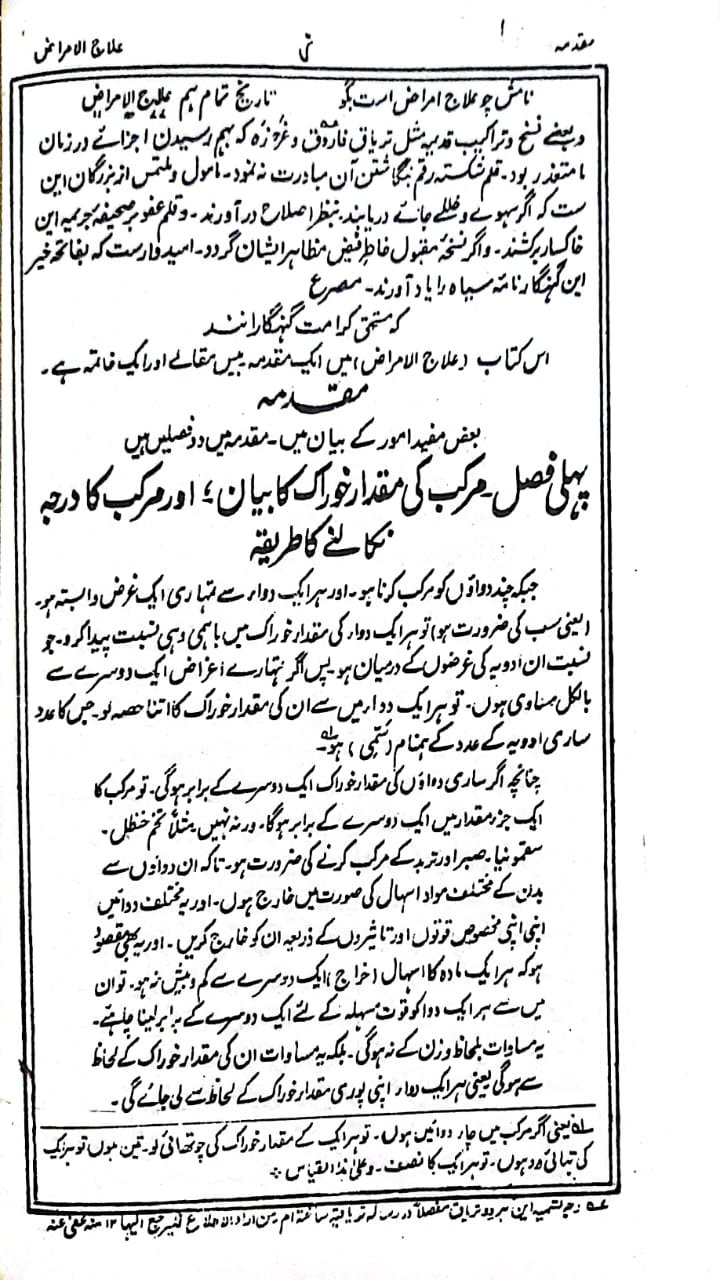 مقدمہ ا ش علاج الامراض
نامش چو علاج امراض است بگو تاریخ تمام ہم علاج الامراض
وبعضے نسخ و تراکیب قدیمہ مثل تریاق فاروق وغیرہ کہ بہم رسیدن اجزائے در زمان
ما متعذر بود۔ قلم شکستہ رقم نگاشتن آن مبادرت نہ نمود۔ مامول و ملتمس از بزرگان این
ست کہ اگر سہوے و خللے جائے دریابند بنظر اصلاح در آورند۔ و قلم عفو بر صحیفۂ جریمہ این
خاکسار برکشند۔ و اگر نسخۂ مقبول خاطر فیض مظاہر ایشان گردد۔ امیدوارست کہ بفاتحۂ خیر
این گنہگار نامہ سیاہ را یاد آورند۔ مصرع
کہ مستحق کرامت گنہگارانند
اس کتاب (علاج الامراض) میں ایک مقدمہ بیس مقالے اور ایک خاتمہ ہے۔
مقدمہ
بعض مفید امور کے بیان میں۔ مقدمہ میں دو فصلیں ہیں
پہلی فصل۔ مرکب کی مقدار خوراک کا بیان؛ اور مرکب کا درجہ
نکالنے کا طریقہ
جبکہ چند دواؤں کو مرکب کرنا ہو۔ اور ہر ایک دواء سے تمہاری ایک غرض وابستہ ہو۔
(یعنی سب کی ضرورت ہو) تو ہر ایک دواء کی مقدار خوراک میں باہمی وہی نسبت پیدا کرو۔ جو
نسبت ان ادویہ کی غرضوں کے درمیان ہو۔ پس اگر تمہارے اغراض ایک دوسرے سے
بالکل مساوی ہوں۔ تو ہر ایک دواء میں سے ان کی مقدار خوراک کا اتنا حصہ لو۔ جس کا عدد
ساری ادویہ کے عدد کے ہمنام (سَمِّی) ہو۔
چنانچہ اگر ساری دواؤں کی مقدار خوراک ایک دوسرے کے برابر ہوگی۔ تو مرکب کا
ایک جزء مقدار میں ایک دوسرے کے برابر ہوگا۔ ورنہ نہیں مثلاً تخم حنظل۔
سقمونیا۔ صبر اور تربد کے مرکب کرنے کی ضرورت ہو۔ تاکہ ان دواؤں سے
بدن کے مختلف مواد اسہال کی صورت میں خارج ہوں۔ اور یہ مختلف دوائیں
اپنی اپنی مخصوص قوتوں اور تاثیروں کے ذریعہ ان کو خارج کریں۔ اور یہ بھی مقصود
ہو کہ ہر ایک مادہ کا اسہال (خراج) ایک دوسرے سے کم و بیش نہ ہو۔ تو ان
میں سے ہر ایک دوا کو قوت مسہلہ کے لئے ایک دوسرے کے برابر لینا چاہئے۔
یہ مساوات بلحاظ وزن کے نہ ہوگی۔ بلکہ یہ مساوات ان کی مقدار خوراک کے لحاظ
سے ہوگی یعنی ہر ایک دواء اپنی پوری مقدار خوراک کے لحاظ سے لی جائے گی۔
لہ یعنی اگر مرکب میں چار دوائیں ہوں۔ تو ہر ایک کے مقدار خوراک کی چوتھائی لو۔ تین ہوں تو ہر ایک
کی تہائی دو ہوں۔ تو ہر ایک کا نصف۔ وعلیٰ ہذا القیاس
عہ وجہ تسمیہ این ہر دو تریاق مفصلاً در رسالہ تریاقیہ ساختہ ام من اراد الاطلاع فلیرجع الیہا ۱۲ منہ عفی عنہ